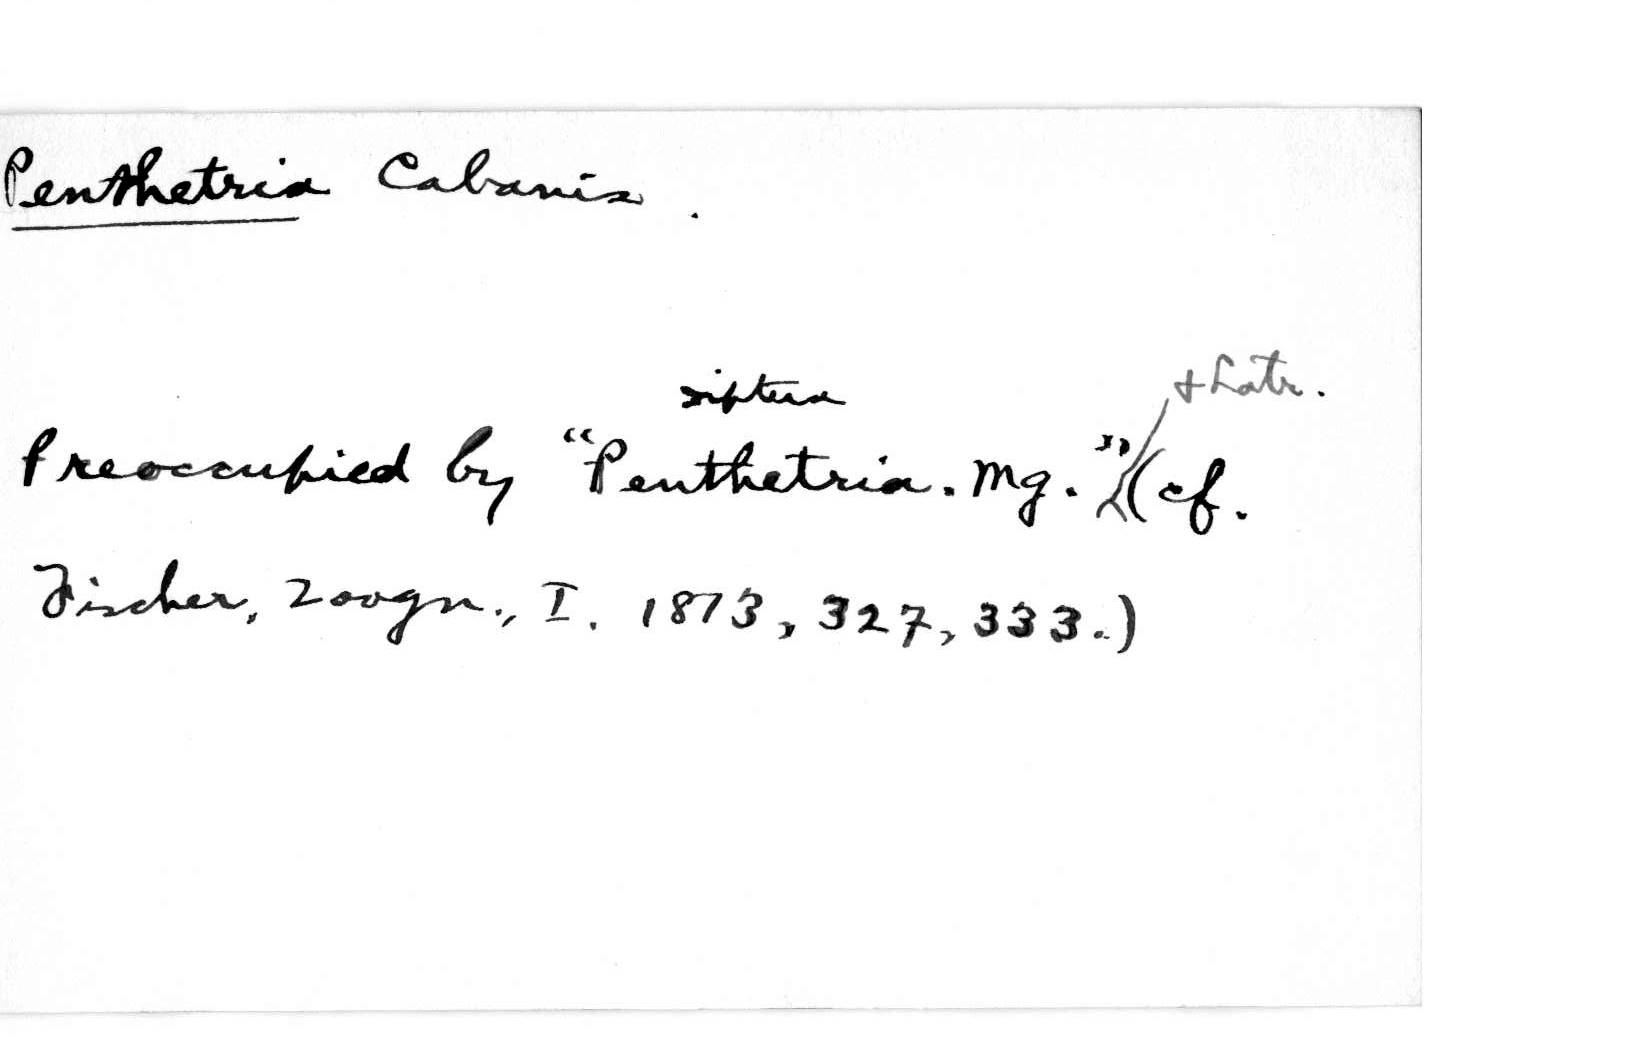 Penthetria Cabanis.
Diptera
& Latr.
Preoccupied by "Penthetria. Mg." (cf.
Fischer, Zoogn., I. 1813, 327, 333.)